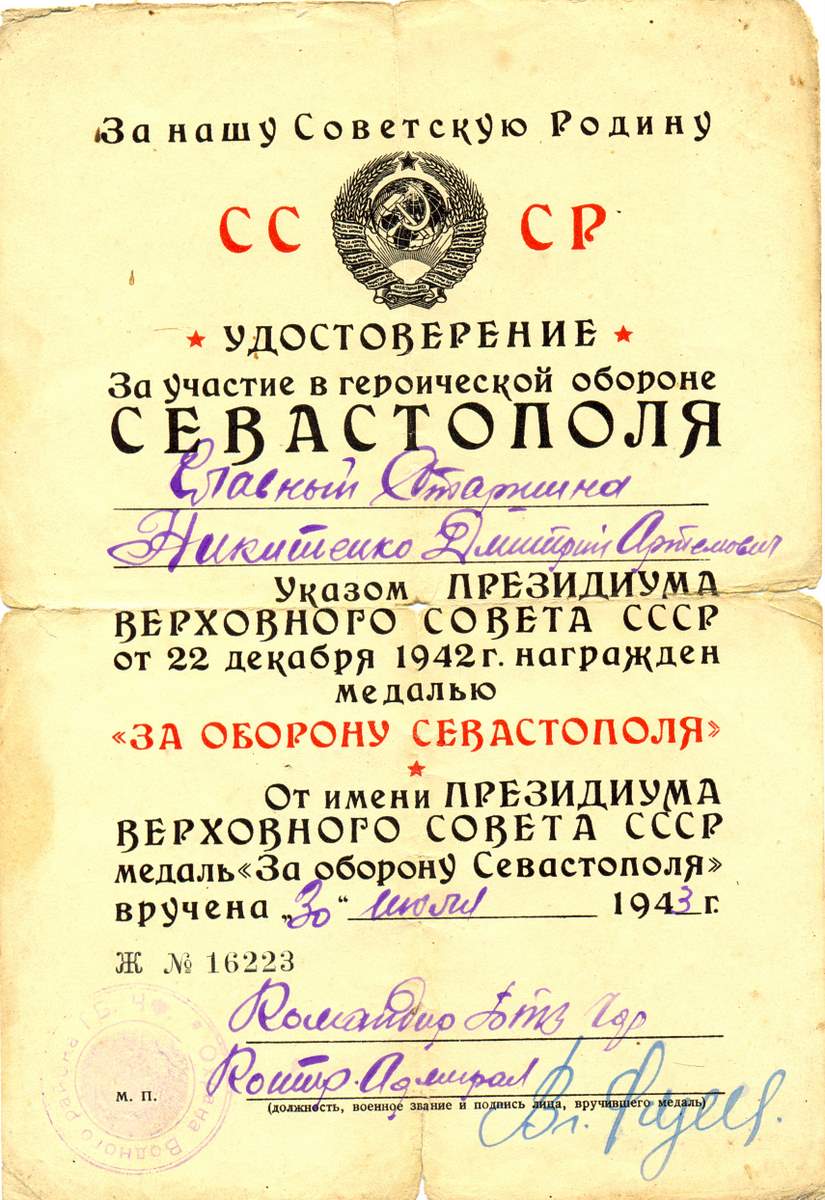 За нашу Советскую Родину
СССР
УДОСТОВЕРЕНИЕ
За участие в героической обороне
СЕВАСТОПОЛЯ
Главный Старшина
Никитенко Дмитрий Артемович
Указом ПРЕЗИДИУМА
ВЕРХОВНОГО СОВЕТА СССР
от 22 декабря 1942 г. награжден
медалью
«ЗА ОБОРОНУ СЕВАСТОПОЛЯ»
От имени ПРЕЗИДИУМА
ВЕРХОВНОГО СОВЕТА СССР
медаль «За оборону Севастополя»
вручена „30“ июля 1943 г.
Ж № 16223
Командир
Контр. Адмирал
М. П.
(должность, военное звание и подпись лица, вручившего медаль)
Охрана Водного района